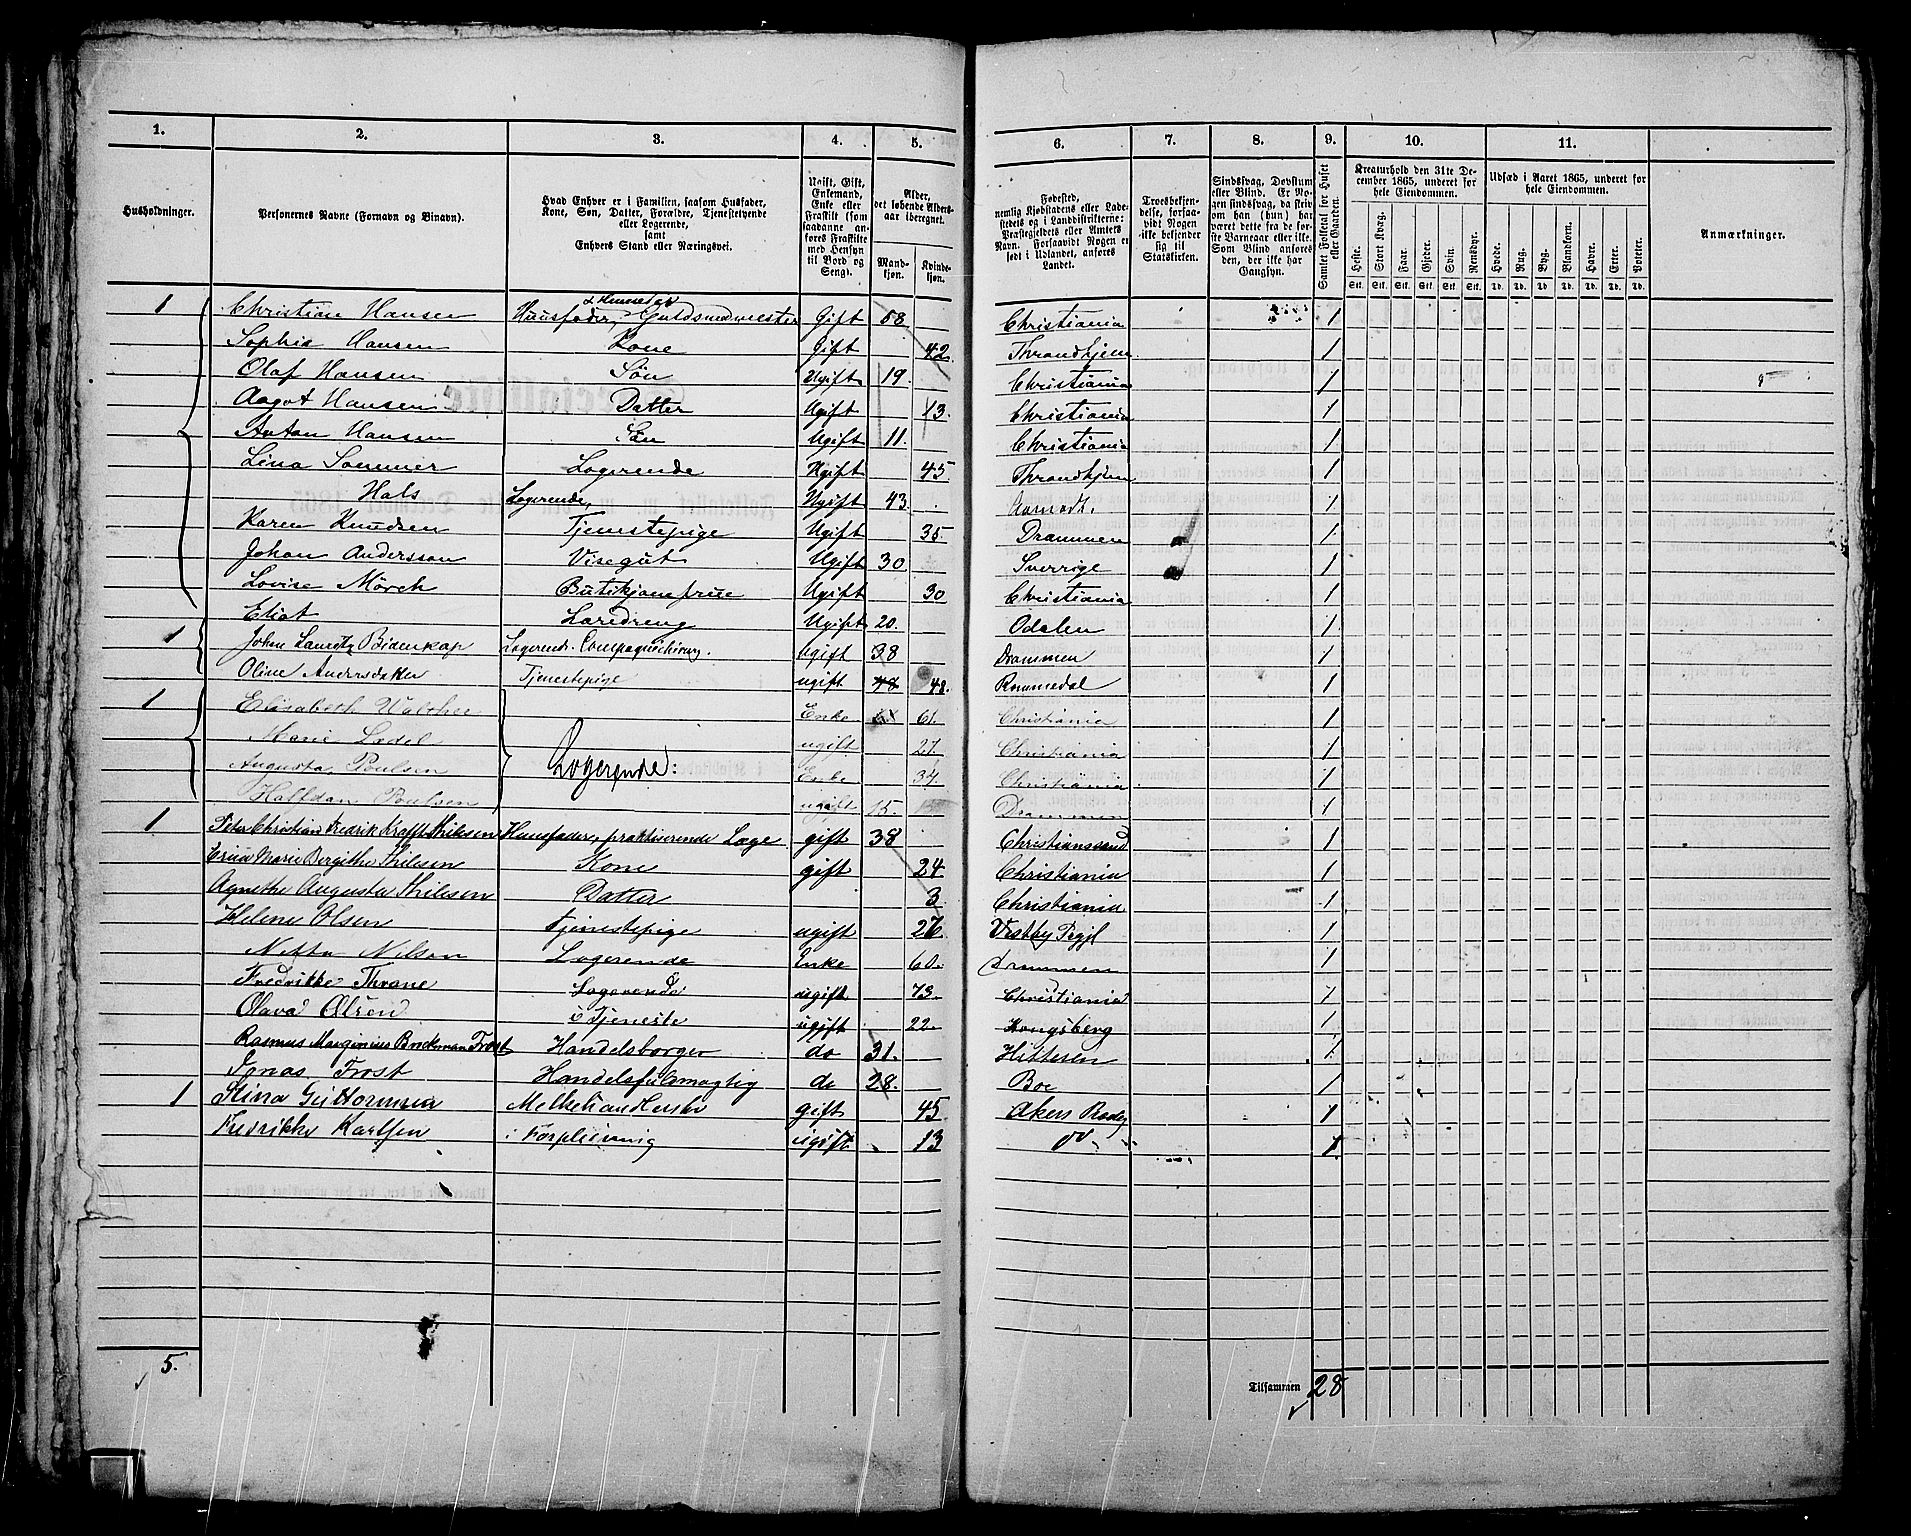 1. 2. 3. 4. 5. 6. 7. 8. 9. 10. 11.
Husholdninger.
Personernes Navne (Fornavn og Binavn).
Hvad Enhver er i Familien, saasom Husfader, Kone, Søn, Datter, Forældre, Tjenestetyende eller Logerende, samt Enhvers Stand eller Næringsvei.
Ugift, Gift, Enkemand, Enke eller Fraskilt (som saadanne anføres Fraskilte med Hensyn til Bord og Seng).
Alder, det løbende Aldersaar iberegnet.
Mandkjøn. Kvindekjøn.
Fødested, nemlig Kjøbstadens eller Ladestedets og i Landdistrikterne: Præstegjeldets eller Amtets Navn. Forsaavidt Nogen er født i Udlandet, anføres Landet.
Troesbekjendelse, forsaavidt Nogen ikke bekjender sig til Statskirken.
Sindssvag, Døvstum eller Blind. Er Nogen sindssvag, da skrives om han (hun) har været dette fra de første Barneaar eller ikke. Som Blind anføres den, der ikke har Gangsyn.
Samlet Folketal for Huset eller Gaarden.
Kreaturhold den 31te December 1865, underet for hele Eiendommen.
Heste. Stort Kvæg. Faar. Gjeder. Svin. Rensdyr.
Udsæd i Aaret 1865, underet for hele Eiendommen.
Hvede. Rug. Byg. Blandkorn. Havre. Erter. Poteter.
Anmærkninger.
Stk. Stk. Stk. Stk. Stk. Stk. Td. Td. Td. Td. Td. Td. Td.
1 Christian Hansen Huusfader, Guldsmedmester Gift 58 Christiania 1
Sophie Hansen Kone Gift 42 Throndhjem 1
Olaf Hansen Søn Ugift 19 Christiania 1
Aagot Hansen Datter Ugift 13 Christiania 1
Anton Hansen Søn Ugift 11. Christiania 1
Lina Sommer Logerende Ugift 45 Throndhjem 1
Hals Logerende, Ugift 43 Aamodt. 1
Karen Knudsen Tjenestepige Ugift 35 Drammen 1
Johan Andersson Visegut Ugift 30 Sverrige 1
Lovise Mörch Butikjomfrue Ugift 30 Christiania 1
Eliat Læredreng Ugift 20. Odalen 1
1 Johan Lauretz Bidenkap Logerend. Compagnichirurg. ugift 38 Drammen 1
Oline Andersdatter Tjenestepige ugift 48 48. Rommedal 1
1 Elisabeth Walther Enke 61. Christiania 1
Marie Lødel Logerende: ugift 27. Christiania 1
Augusta Poulsen Enke 34. Christiania 1
Halfdan Poulsen ugift 15. Drammen 1
1 Peter Christian Fredrik Krafft Thilesen Huusfader, praktiserende Læge gift 38 Christianssand 1
Erica Marie Bergithe Thilesen Kone gift 24 Christiania 1
Agnethe Augusta Thilesen Datter 3. Christiania 1
Helene Olsen Tjenestepige ugift 26 Vestby Prgjl 1
Netta Nilsen Logerende Enke 60. Drammen 1
Fredrikke Thrane Logerende ugift 73. Christiania 1
Olava Olsen i Tjeneste ugift 22. Kongsberg 1
Rasmus Marginius Brickman Frost Handelsborger do 31. Hitteren 1
Jonas Frost Handelsfulmægtig do 28. Boe 1
1 Stina Guttormsen Melkehandlerske gift 45 Akers Prestgj 1
Fredrikke Karlsen i Forpleining ugift 13 do 1
5. Tilsammen 28